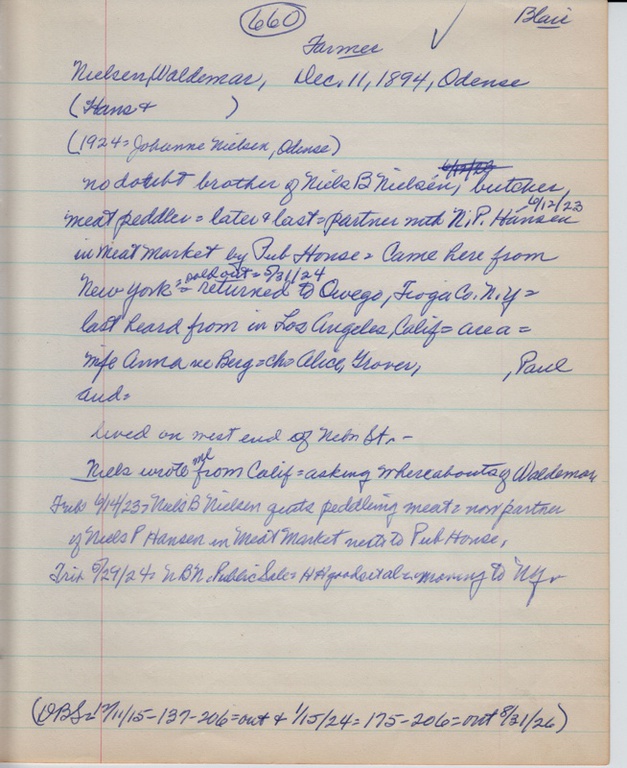 660
Blair
Farmer
Nielsen, Waldemar, Dec. 11, 1894, Odense
(Hans + )
(1924 = Johanne Nielsen, Odense)
no doubt brother of Niels B Nielsen, butcher,
6/12/23
meat peddler = later & last = partner with N. P. Hansen
in Meat Market by Pub House = Came here from
sold out = 5/31/24
New York = returned to Owego, Tioga Co. N.Y =
last heard from in Los Angeles, Calif = area =
wife Anna ne Berg = ch = Alice, Grover, , Paul
and =
lived on west end of Nebr St. -
Niels wrote me from Calif = asking whereabouts of Waldemar
Trib 6/14/23 = Niels B Nielsen quits peddling meat = now partner
of Niels P Hansen in Meat Market next to Pub House,
Trib 5/29/24 = N B N. Public Sale = HH goods et al = moving to NY.
(DBS = 12/11/15 - 137 - 206 = out & 1/15/24 = 175 - 206 = out 8/31/26)